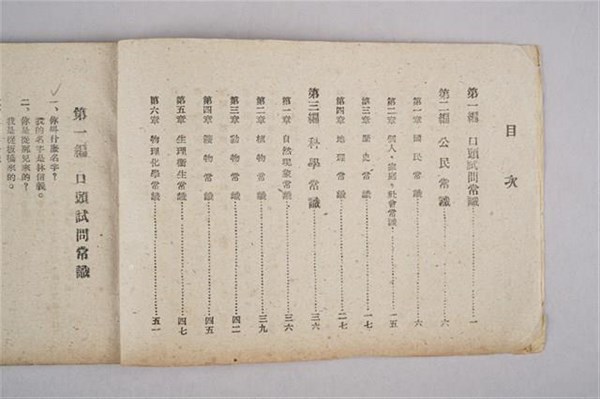 目次
第一編 口頭試問常識 一
第二編 公民常識 六
第一章 國民常識 六
第二章 個人、家庭、社會常識 一五
第三章 歷史常識 一七
第四章 地理常識 二七
第三編 科學常識 三六
第一章 自然現象常識 三六
第二章 植物常識 三九
第三章 動物常識 四二
第四章 礦物常識 四五
第五章 生理衞生常識 四七
第六章 物理化學常識 五一
第一編 口頭試問常識
一、你叫什麽名字?
我的名字是林信義。
二、你是從那兒來的?
我是從板橋來的。